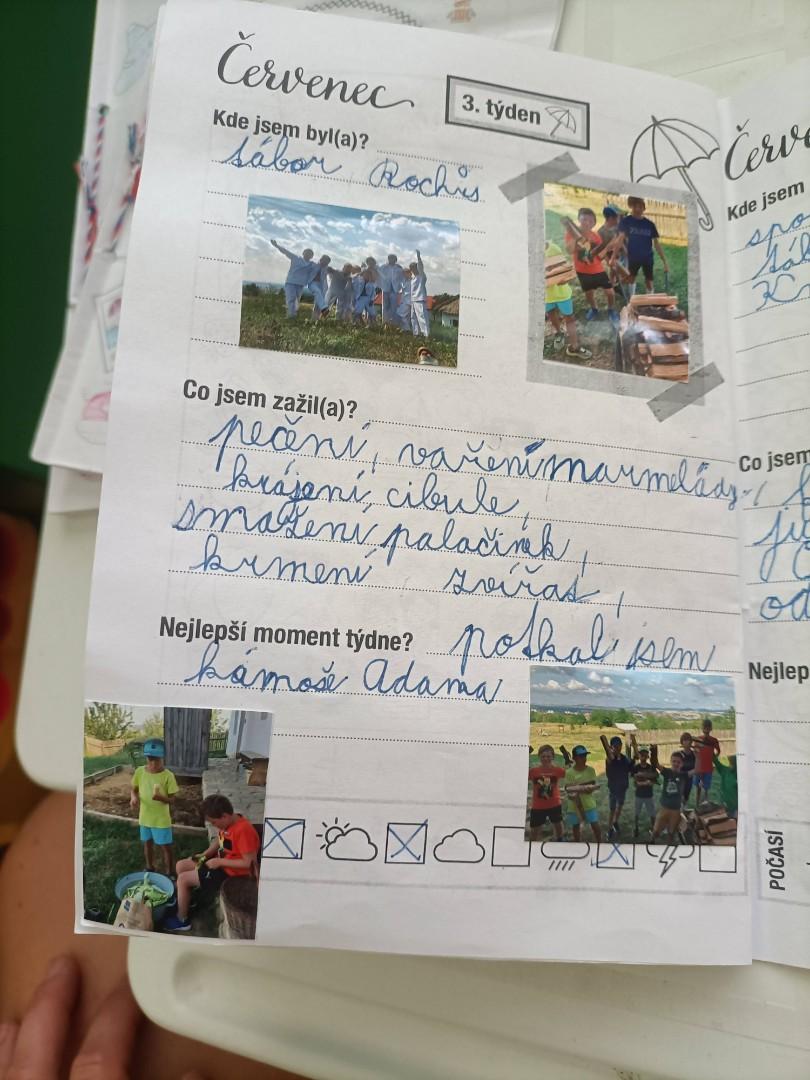 Červenec
3. týden
Kde jsem byl(a)?
tábor Rochůs
Co jsem zažil(a)?
pečení, vaření marmelády,
krájení cibule,
smažení palačinek,
krmení zvířat,
Nejlepší moment týdne? potkal jsem
kámoše Adama
Červe
Kde jsem
spo
táb
Co jsem
od
Nejlep
POČASÍ